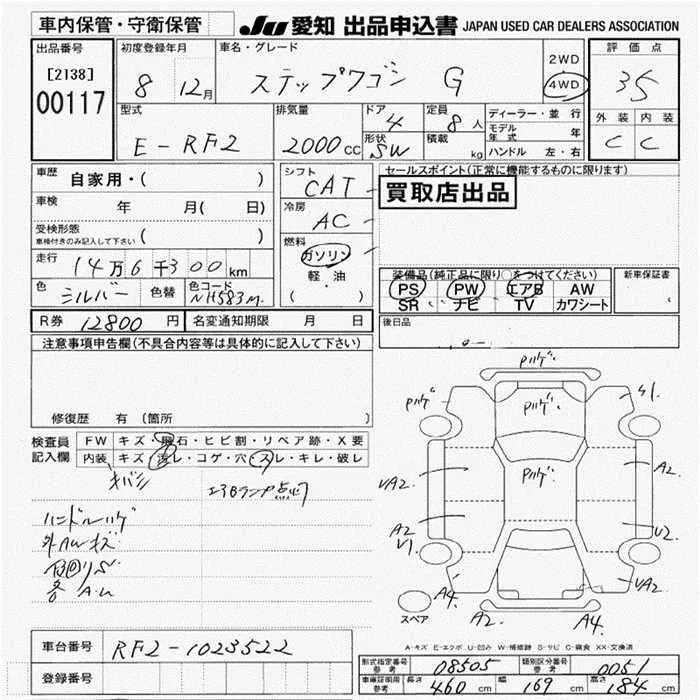 車内保管・守衛保管
JU 愛知 出品申込書 JAPAN USED CAR DEALERS ASSOCIATION
出品番号
[2138]
00117
初度登録年月
8 12月
車名・グレード
ステップワゴン G
2WD
4WD
評価点
35
外装 内装
C C
型式
E-RF2
排気量
2000cc
ドア
4
形状
SW
定員
8人
積載
kg
ディーラー・並行
モデル年式 年
ハンドル 左・右
車歴 自家用・( )
車検 年 月( 日)
受検形態
車検付きのみ記入して下さい ( )
走行 14万6千300km
色 シルバー 色替 色コード NH583M
シフト
CAT
冷房
AC
燃料
ガソリン
軽・油
( )
セールスポイント(正常に機能するものに限ります)
買取店出品
装備品(純正品に限り○をつけてください)
PS PW エアB AW
SR ナビ TV カワシート
新車保証書
後日品
R券 12800円 名変通知期限 月 日
注意事項申告欄(不具合内容等は具体的に記入して下さい)
修復歴 有(箇所
検査員記入欄
FW キズ・飛石・ヒビ割・リペア跡・X要
内装 キズ・汚レ・コゲ・穴・スレ・キレ・破レ
エアBランプ点灯
ハンドルハゲ
外AWキズ
各A.U
Pハゲ
Pハゲ
Pハゲ
A2
UA2
A2
U1
U2
A4
UA2
A2
A4
スペア
A-キズ E-エクボ U-凹み W-補修跡 S-サビ C-腐食 XX-交換済
車台番号 RF2-1023522
登録番号
形式指定番号 参考 08505 類別区分番号 参考 0051
車庫証明用 参考 長さ 460cm 幅 169cm 高さ 184cm